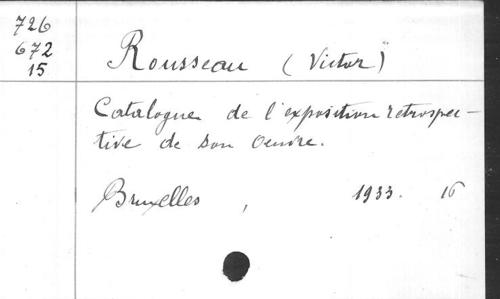 726
672
15
Rousseau (Victor)
Catalogue de l'exposition retrospec-
tive de son oeuvre.
Bruxelles, 1933. 16